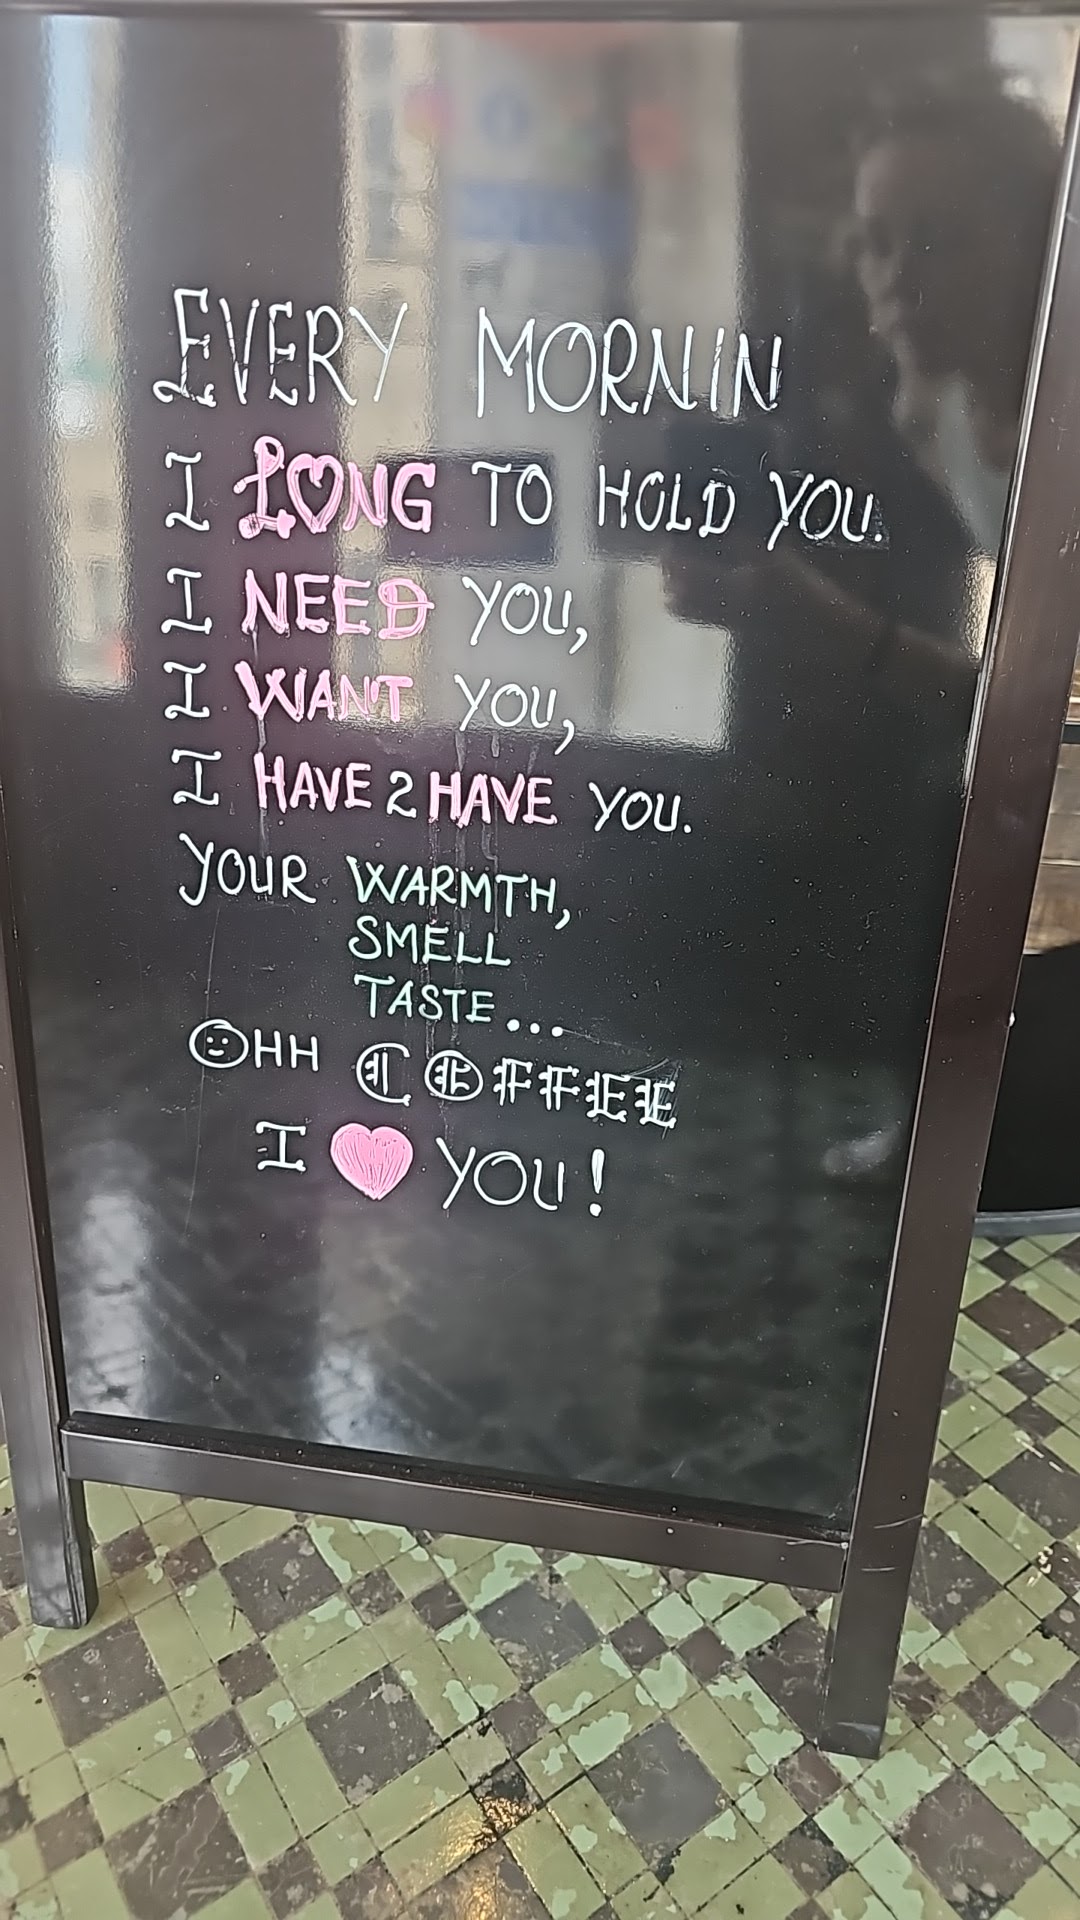 EVERY MORNIN
I LONG TO HOLD YOU.
I NEED YOU,
I WANT YOU,
I HAVE 2 HAVE YOU.
YOUR WARMTH,
SMELL
TASTE...
OHH COFFEE
I ♥ YOU!